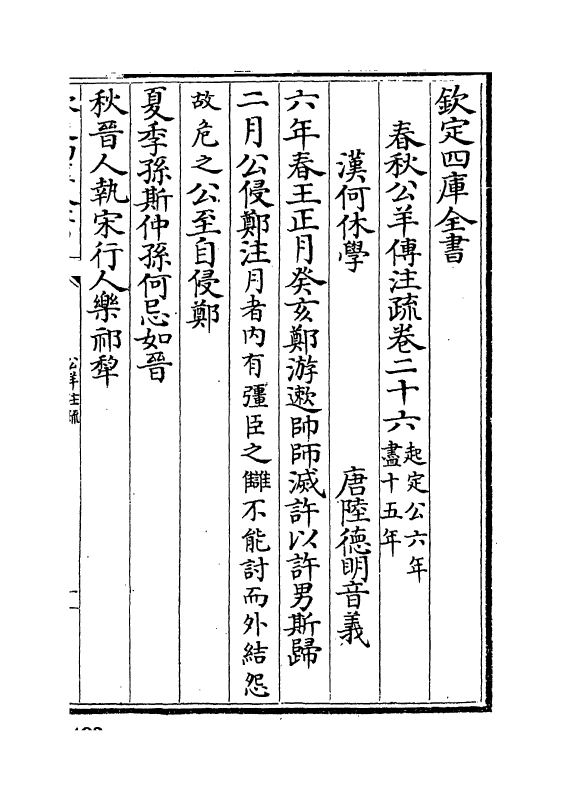 欽定四庫全書
春秋公羊傳注疏卷二十六起定公六年
盡十五年
漢何休學 唐陸德明音義
六年春王正月癸亥鄭游遬帥師滅許以許男斯歸
二月公侵鄭注月者内有彊臣之讎不能討而外結怨
故危之公至自侵鄭
夏季孫斯仲孫何忌如晉
秋晉人執宋行人樂祁犂
公羊注疏